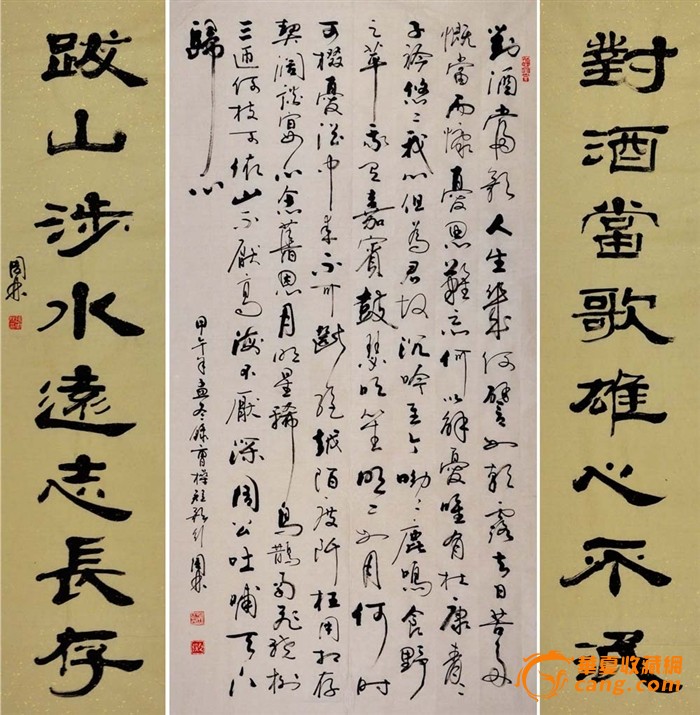 對酒當歌雄心不
對酒當歌人生幾何譬如朝露去日苦多
慨當而慷憂思難忘何以解憂唯有杜康青〻
子衿悠〻我心但為君故沉吟至今呦〻鹿鳴食野
之苹我有嘉賓鼓瑟吹笙明〻如月何時
可掇憂從中來不可斷絕越陌度阡枉用相存
契闊談宴心念舊恩月明星稀烏鵲南飛繞樹
三匝何枝可依山不厭高海不厭深周公吐哺天下
歸心
甲午年孟冬錄曹操短歌行
跋山涉水遠志長存
華夏收藏网
cang.com